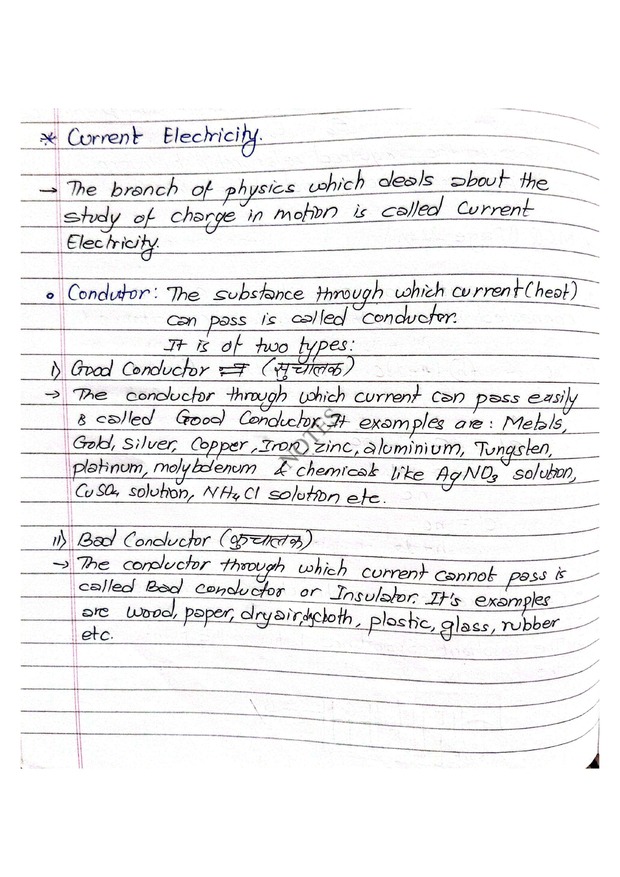 * Current Electricity.
→ The branch of physics which deals about the
study of charge in motion is called Current
Electricity.
• Condutor: The substance through which current (heat)
can pass is called conductor.
It is of two types:
i) Good Conductor (सुचालक)
→ The conductor through which current can pass easily
is called Good Conductor. It examples are: Metals,
Gold, Silver, Copper, Iron, zinc, aluminium, Tungsten,
platinum, molybdenum & chemicals like AgNO3 solution,
CuSO4 solution, NH4Cl solution etc.
NOTES
ii) Bad Conductor (कुचालक)
→ The conductor through which current cannot pass is
called Bad conductor or Insulator. It's examples
are wood, paper, dry air, plastic, glass, rubber
etc.